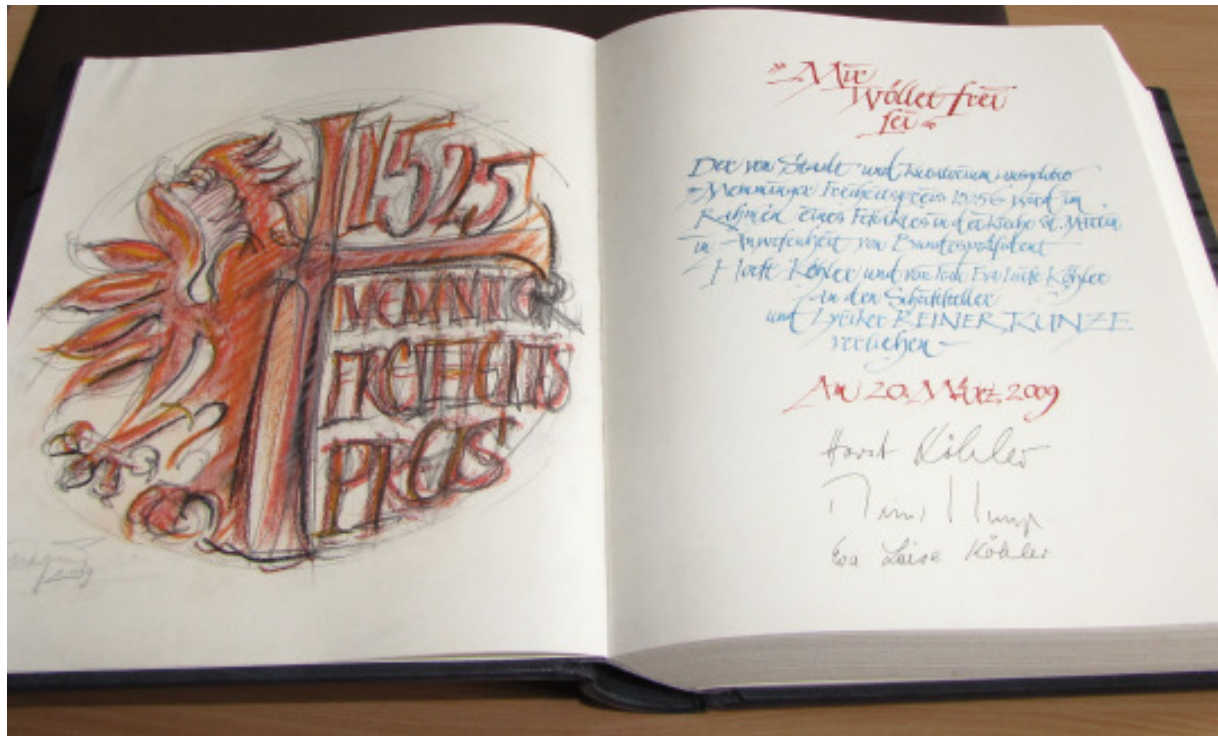 1525
MEMMINGER
FREIHEITS
PREIS
2009
"Mir
wöllet frei
sei"
Der von Stadt und Kuratorium ausgelobte
"Memminger Freiheitspreis 1525" wird im
Rahmen eines Festaktes in der Kirche St. Martin
in Anwesenheit von Bundespräsident
Horst Köhler und von Frau Eva Luise Köhler
an den Schriftsteller
und Lyriker REINER KUNZE
verliehen -
Am 20. März 2009
Horst Köhler
Eva Luise Köhler